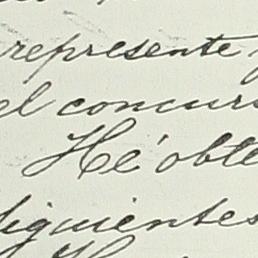 represente
el concurs
He' obte
siguientes